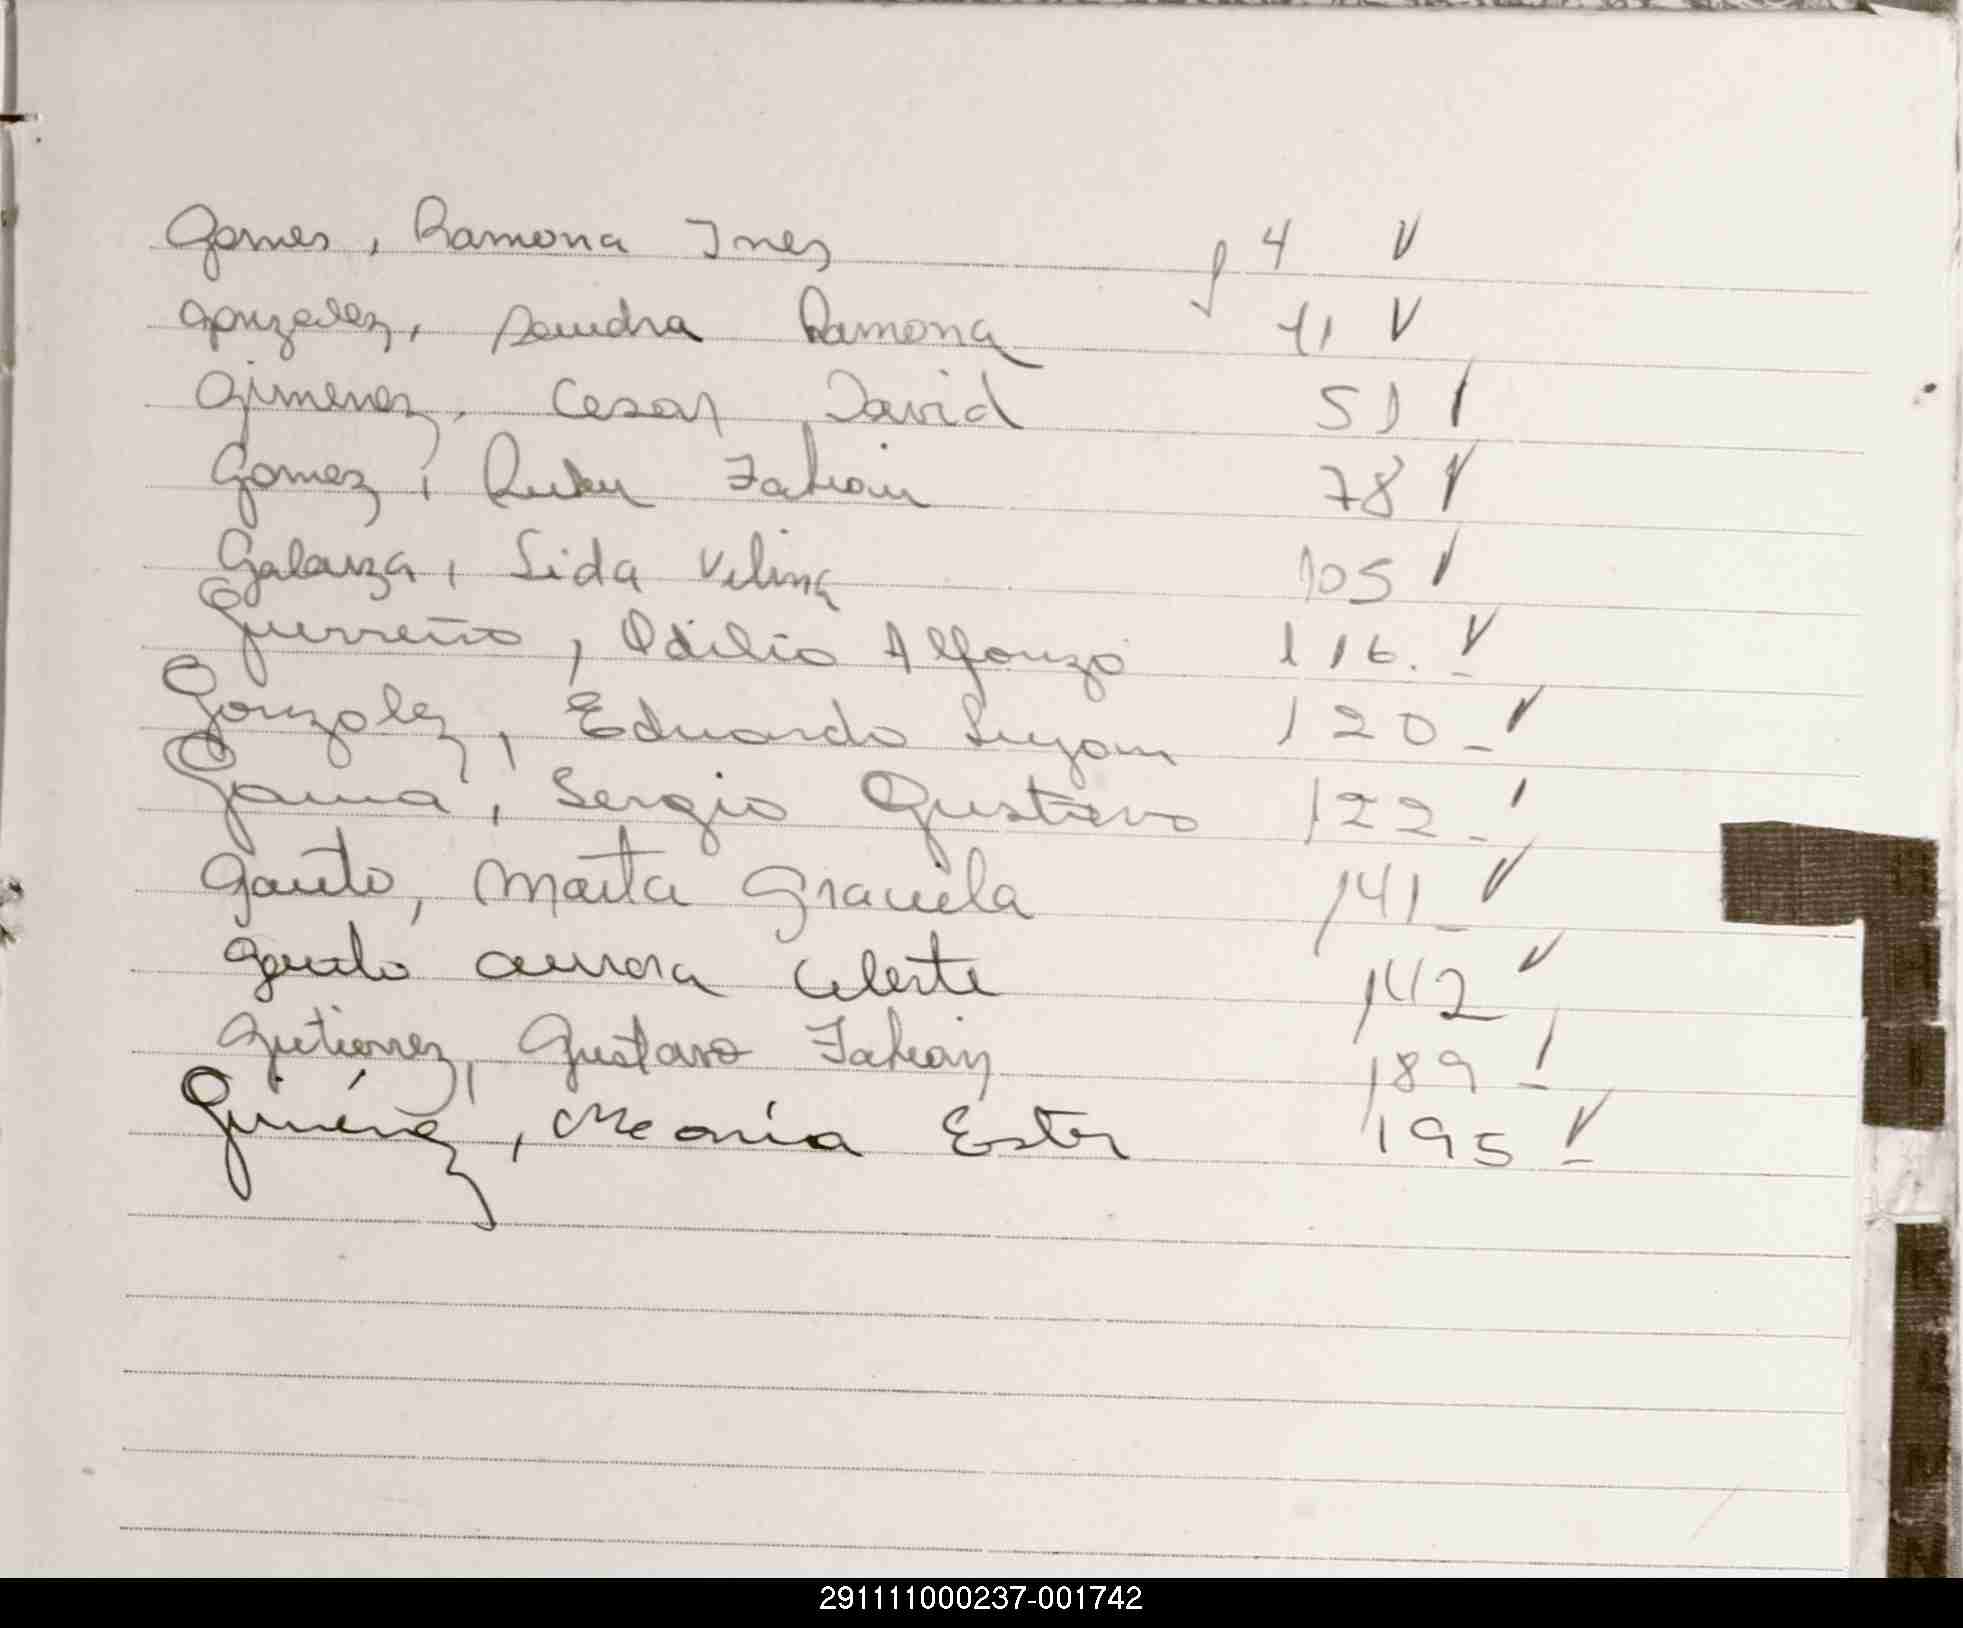 Gomes, Ramona Ines f 4 V
Gonzalez, Sandra Ramona 41 V
Gimenez, Cesar David 51 /
Gomez, Ruben Fabian 78 V
Galarza, Lida Velina 105 V
Guerreño, Odilio Alfonzo 116. V
Gonzalez, Eduardo 120 - V
Sergio Gustavo 122 - /
Gauto, Marta Graciela 141 - V
Gauto Aurora Celeste 142 V
Gutierrez, Gustavo Fabian 189 - /
Giménez, María Ester 195 - V
291111000237-001742